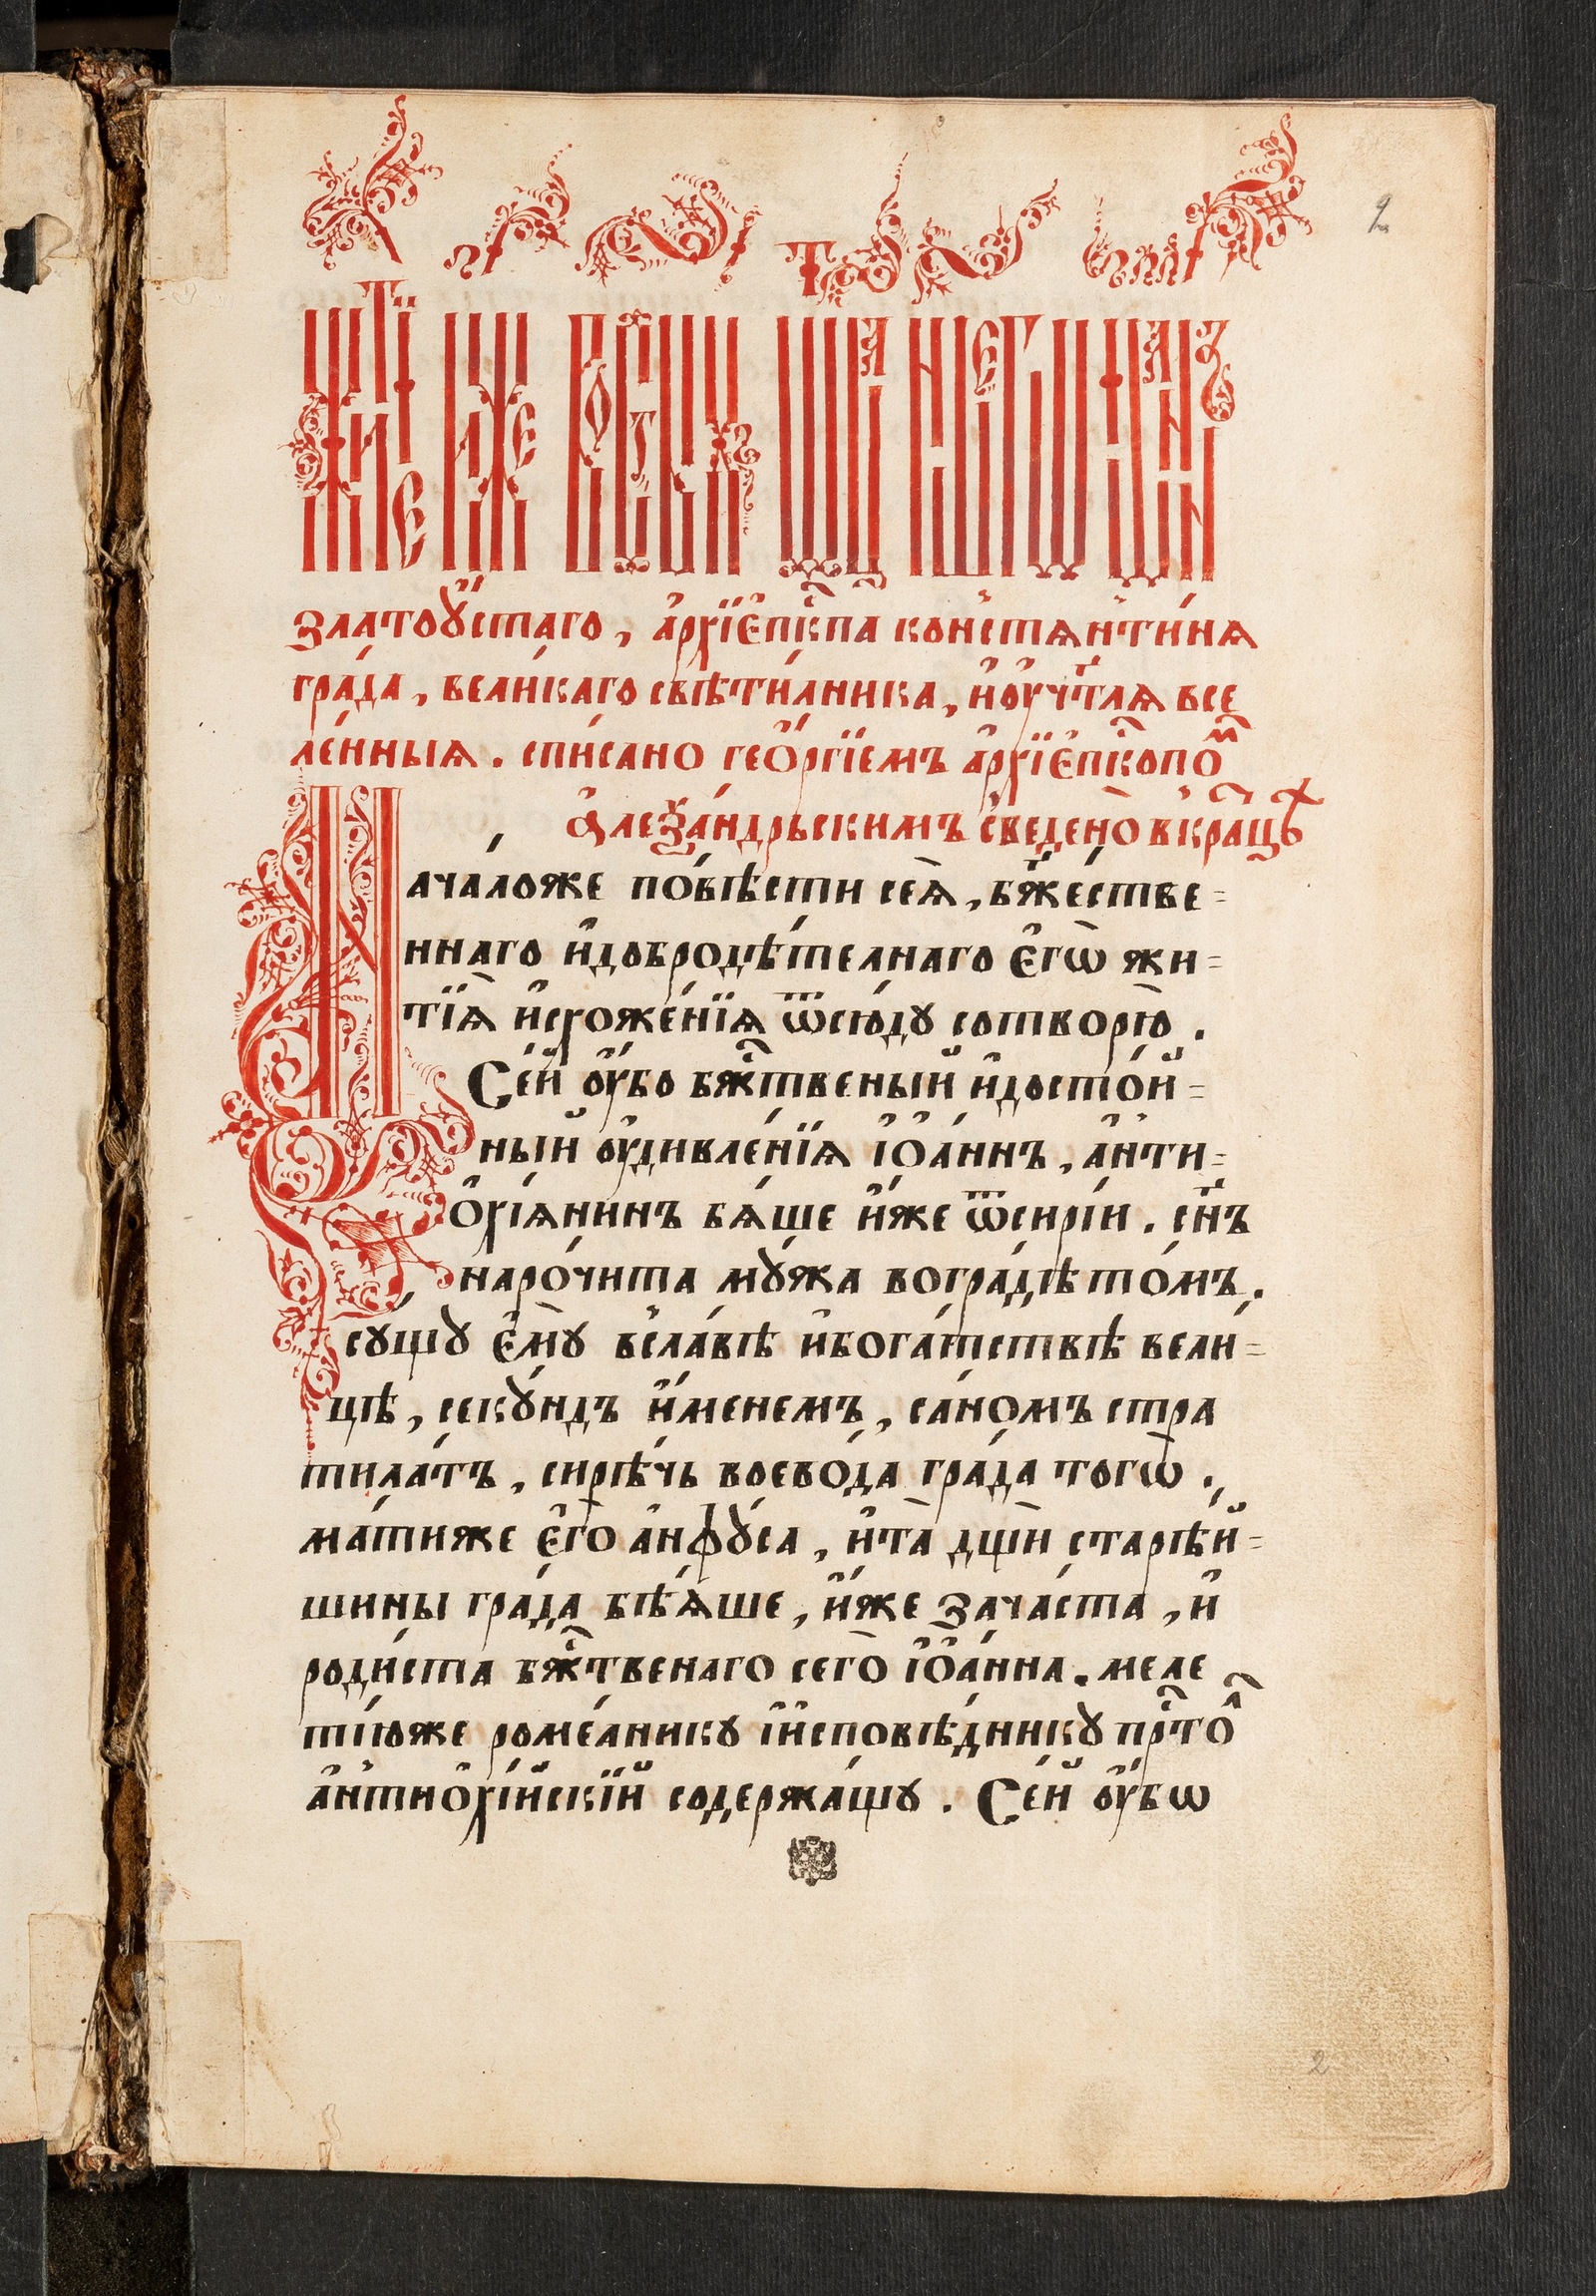 2
Житїе иже во ст҃ыхъ ѻтца нашегѡ їѡанна
златоꙋ́стаго, а҆рхїе҆пⷭ҇кпа конⸯстѧнⸯти́нѧ
гра́да, вели́каго свѣти́лника, и҆ оу҆чт҃лѧ все
ле́нныѧ. спи́сано гео҆́ргїемъ а҆рхїе҆пⷭ҇копоⷨ
а҆леѯа́ндрьскимъ сведено̀ в кра́цѣⷯ
Нача́ло же по́вѣсти сеѧ̀, бж҃е́стве=
ннаго и҆ добродѣ́телнаго є҆гѡ̀ жи=
тїѧ̀ и҆ схоже́нїѧ ѿсю́дꙋ сотворю̀.
Се́й оу҆́бо бжⷭ҇твеный и҆ досто́й=
ный оу҆дивле́нїѧ і҆ѻ҆а́ннъ, а҆нти=
ѻ҆хі́ѧнинъ бѧ́ше и҆́же ѿ сирі́и. сн҃ъ
наро́чита мꙋ́жа во гра́дѣ то́мъ.
сꙋ́щꙋ є҆мꙋ̀ в сла́вѣ и҆ бога́тствѣ вели=
цѣ, секꙋ́ндъ и҆́менемъ, са́номъ стра
тила́тъ, сирѣ́чь воево́да гра́да тогѡ̀.
ма́ти же є҆го̀ а҆нѳꙋ́са, и҆ та̀ дщѝ старѣ́й=
шины гра́да бѣѧ́ше, и҆́же зача́ста, и҆
роди́ста бжⷭ҇твенаго сего̀ і҆ѻ҆а́нна. меле
ті́ю же роме́аникꙋ і҆ и҆сповѣ́дникꙋ прⷭ҇тоⷧ
а҆нтиѻ҆хі́йскїй содержа́щꙋ. Се́й оу҆́бѡ
2